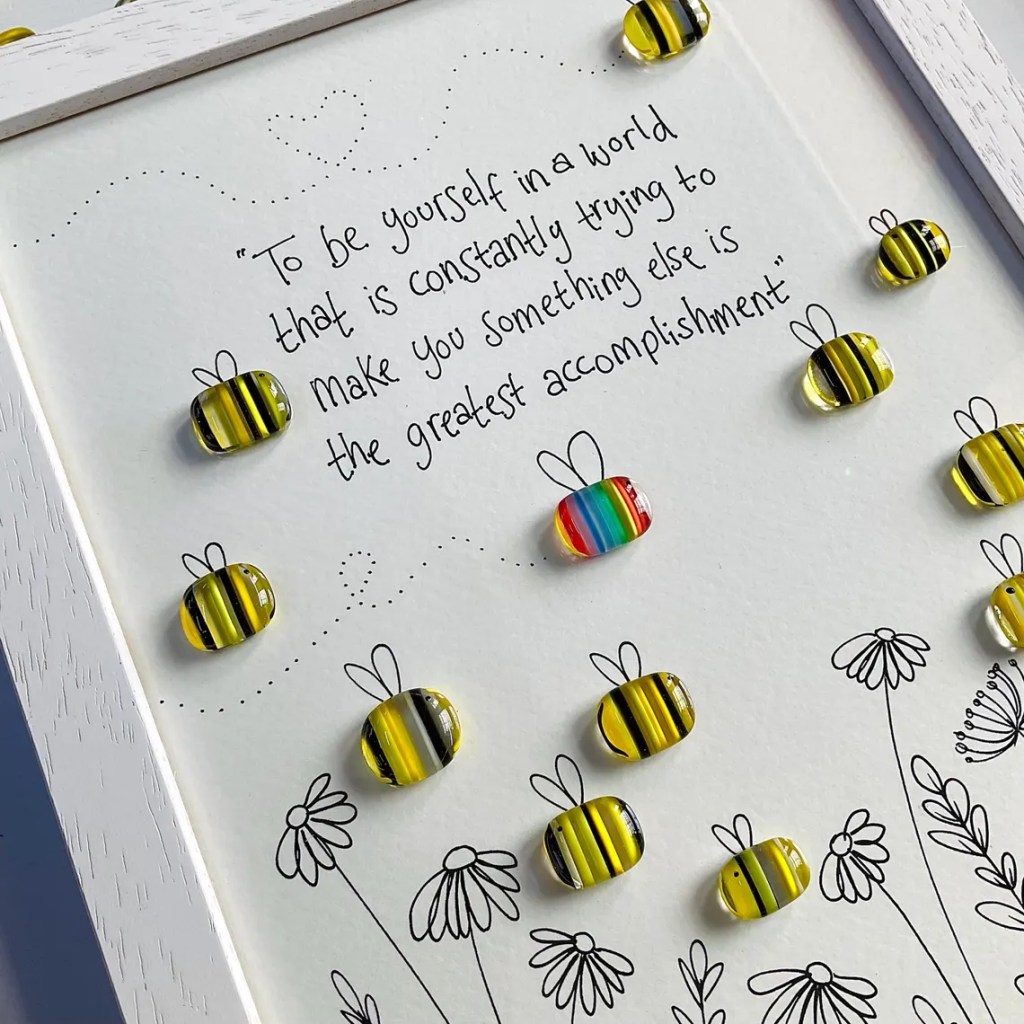 "To be yourself in a world
that is constantly trying to
make you something else is
the greatest accomplishment"